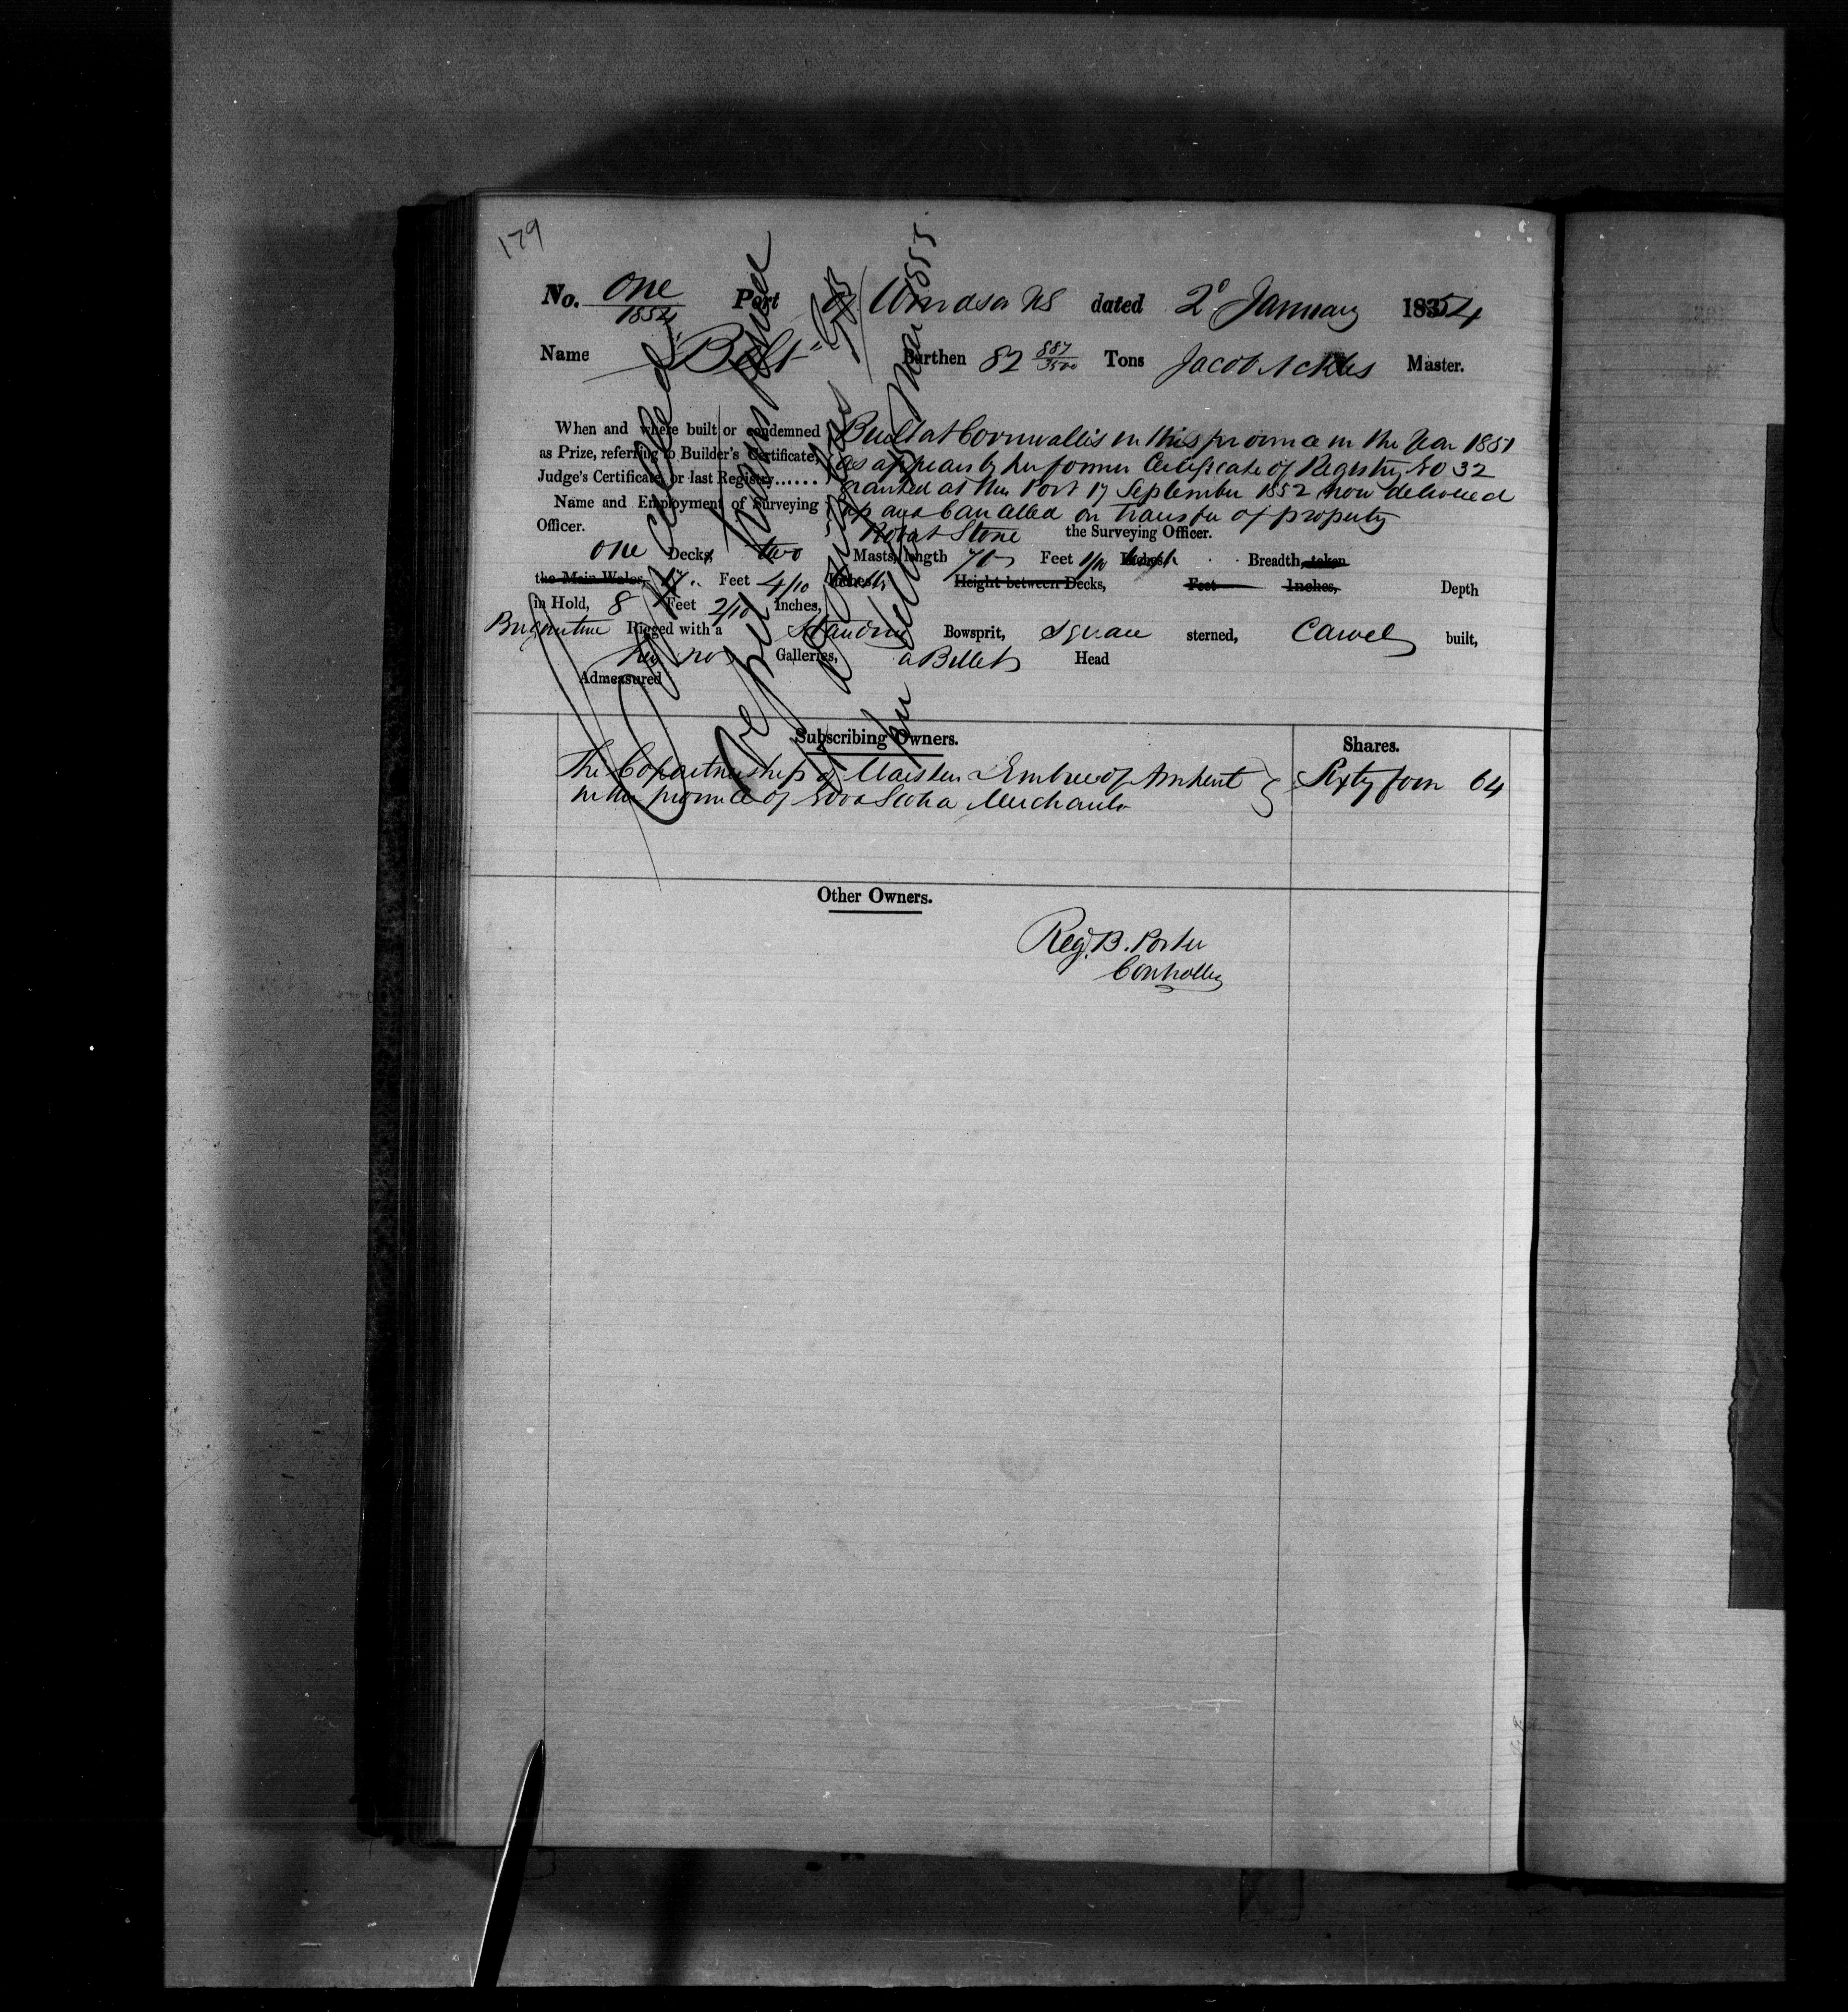 179
No. One Port of Windsor NS dated 2d January 1854
1854
Name "Belt" Burthen 82 887/3500 Tons Jacob Ackles Master.
When and where built or condemned
as Prize, referring to Builder's Certificate,
Judge's Certificate, or last Registry......
Built at Cornwallis in this province in the Year 1851
as appears by her former Certificate of Registry No 32
granted at this Port 17 September 1852 now delivered
up and Cancelled on transfer of property
Name and Employment of Surveying
Officer.
Robert Stone the Surveying Officer.
one Decks, two Masts, length 70 Feet 1/10 Inches, Breadth taken
the Main Wales, 17 Feet 4/10 Inches, Height between Decks, Feet Inches, Depth
in Hold, 8 Feet 2/10 Inches,
Brigantine Rigged with a Standing Bowsprit, Square sterned, Carvel built,
no Galleries, a Billet Head
Admeasured
Subscribing Owners. Shares.
The Copartnership of Embree of Amherst Sixty four 64
in the province of Nova Scotia Merchants
Other Owners.
Reg. B. Porter
Controller
Cancelled
1855